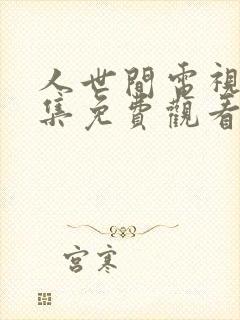 人世間電視
集免費觀看
宮寒